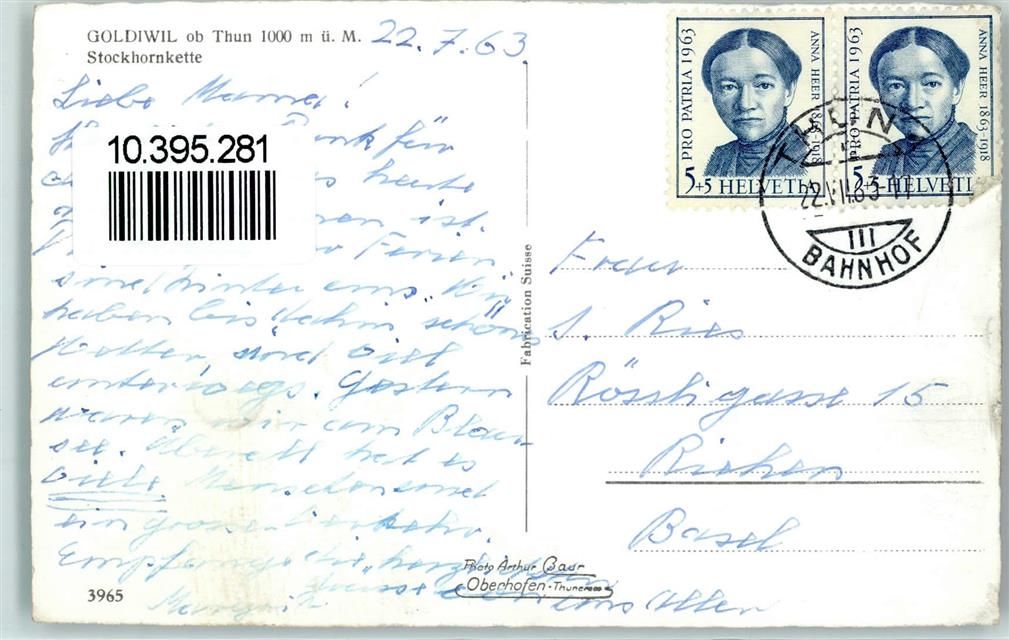 GOLDIWIL ob Thun 1000 m ü. M. 22.7.63.
Stockhornkette
Liebe Mama!
für
10.395.281
heute
ist.
Ferien
sind hinter uns. Wir
haben bis dahin schönes
Wetter, sind viel
unterwegs. Gestern
waren wir am Blau-
see. Überall hat es
viele Menschen und
ein grosser Verkehr.
Empfange die herzlichen
Grüsse von uns Allen
3965
Photo Arthur Baur
Oberhofen-Thunersee
Fabrication Suisse
PRO PATRIA 1963
ANNA HEER 1863-1918
5+5 HELVETIA
PRO PATRIA 1963
ANNA HEER 1863-1918
5+5 HELVETIA
THUN
22.VII.63
III
BAHNHOF
Frau
S. Ries
Rössligasse 15
Riehen
Basel